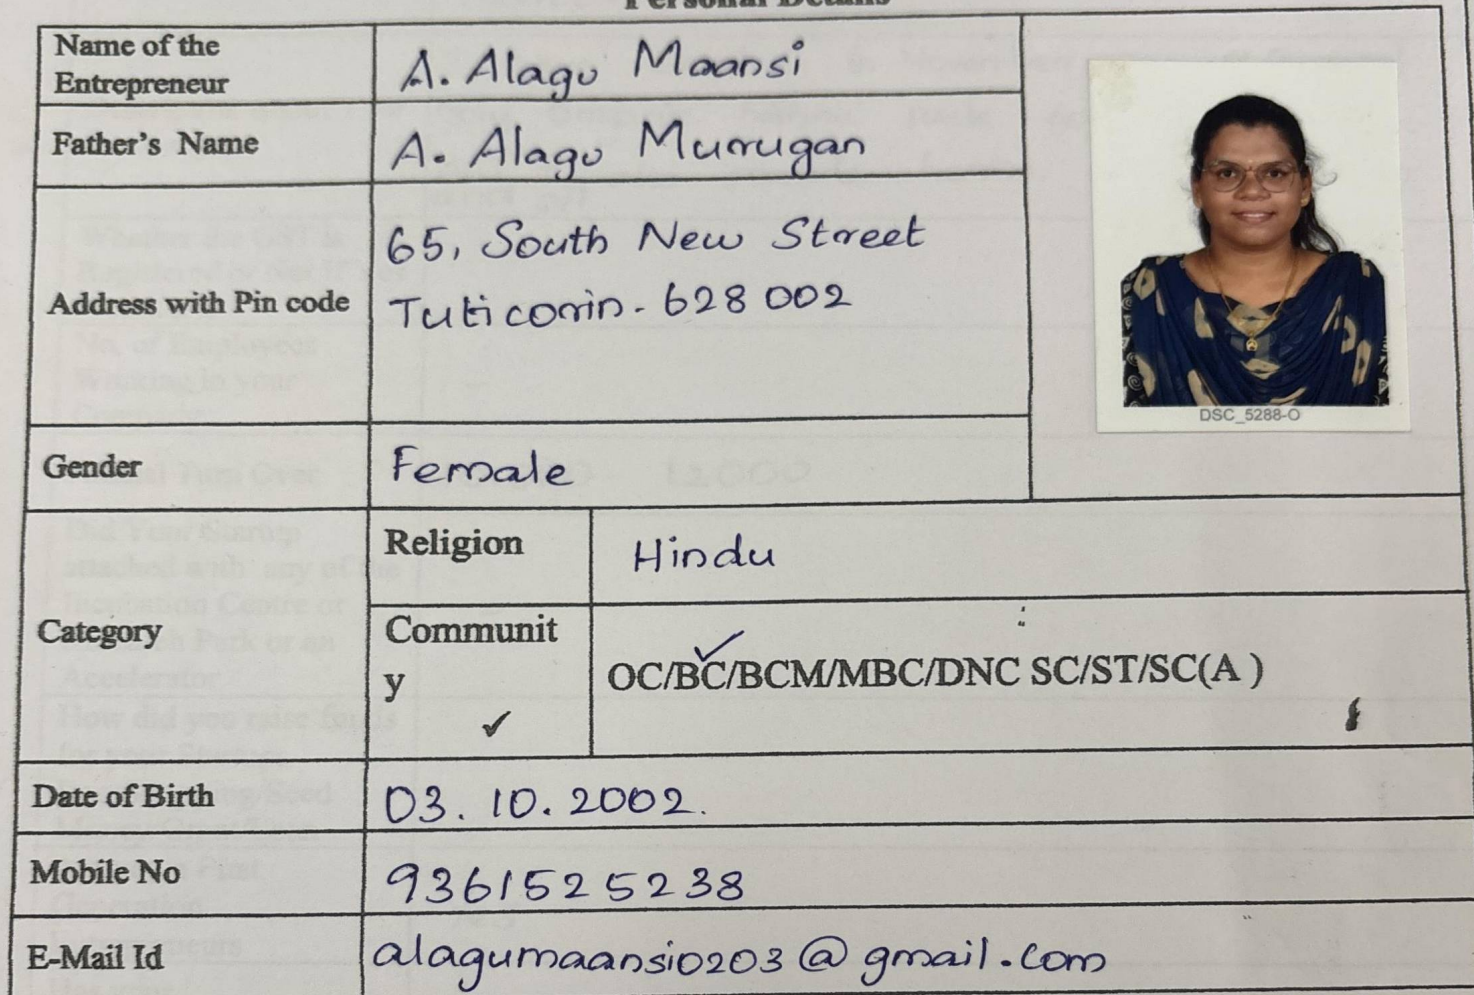 Personal Details
Name of the
Entrepreneur
A. Alagu Maansi
Father's Name
A. Alagu Murugan
Address with Pin code
65, South New Street
Tuticorin - 628 002
DSC_5288-O
Gender
Female
Category
Religion
Hindu
Communit
y
✓
OC/BC/BCM/MBC/DNC SC/ST/SC(A )
Date of Birth
03. 10. 2002.
Mobile No
9361525238
E-Mail Id
alagumaansi0203@gmail.com